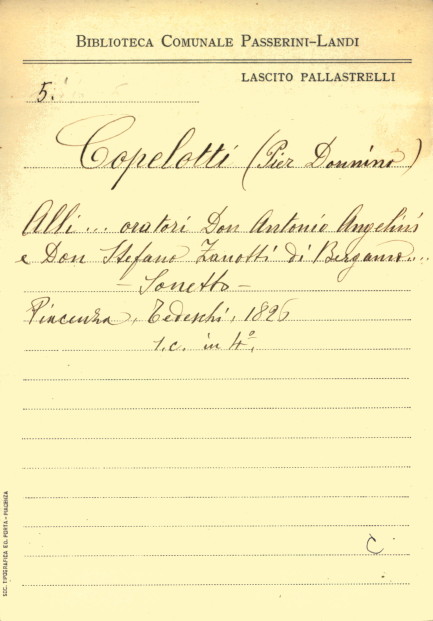 BIBLIOTECA COMUNALE PASSERINI-LANDI
LASCITO PALLASTRELLI
5.
Copelotti (Pier Donnino)
Alli... oratori Don Antonio Angelini
e Don Stefano Zanotti di Bergamo...
- Sonetto -
Piacenza, Tedeschi, 1826
1.c. in 4°.
C
SOC. TIPOGRAFICA ED. PORTA - PIACENZA